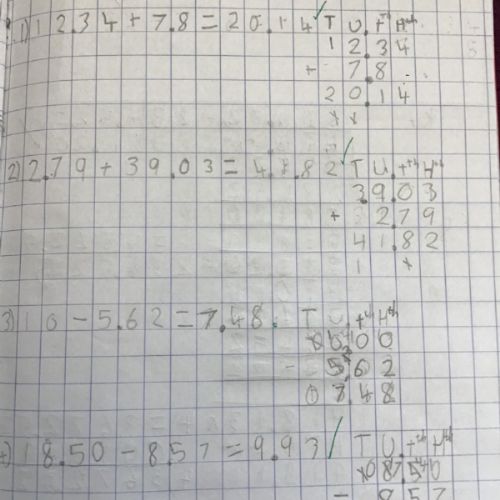 1) 12.34 + 7.8 = 20.14 T U . tth Hth
1 2 . 3 4
+ 7 . 8
2 0 . 1 4
2) 2.79 + 39.03 = 41.82 T U . tth Hth
3 9 . 0 3
+ 2 . 7 9
4 1 . 8 2
1
3) 10 - 5.62 = 7.48 T U . tth Hth
0 0
- 5 . 6 2
0 . 4 8
4) 18.50 - 8.57 = 9.93 T U . tth Hth
- 8 5 7